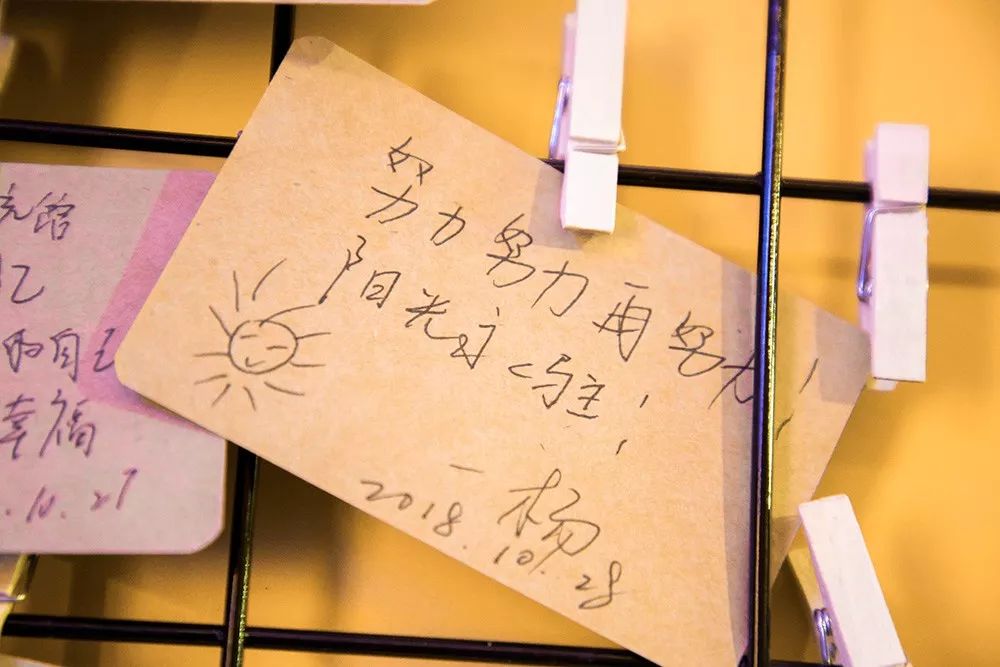 努力努力再努力!
阳光永驻!
—杨
2018.10.28
的自己
幸福
.10.27